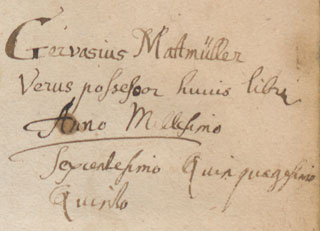 Gervasius Mattmüller
Verus possessor huius libri
Anno Millesimo
Septentesimo Quinquagesimo
Quinto